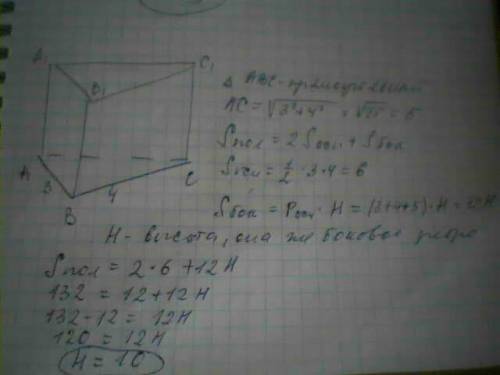 A₁ C₁
B₁
A C
3 4
B
Δ ABC - прямоугольный
AC = √3²+4² = √25 = 5
Sпол = 2Sосн + Sбок
Sосн = 1/2 · 3 · 4 = 6
Sбок = Pосн · H = (3+4+5) · H = 12H
H - высота, она же боковое ребро
Sпол = 2·6 + 12H
132 = 12 + 12H
132 - 12 = 12H
120 = 12H
H = 10